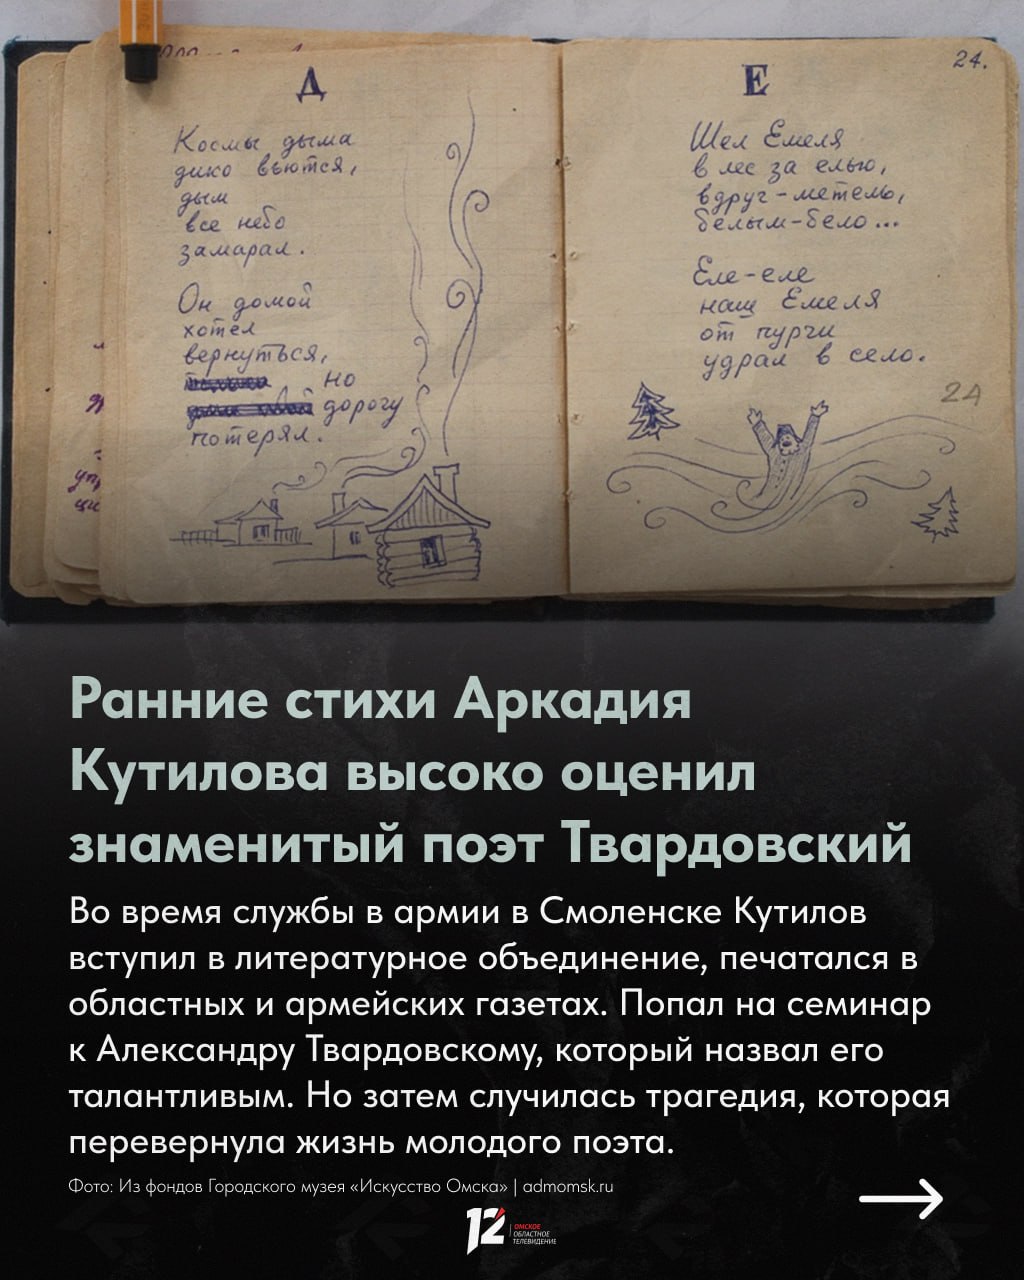 Д
Космы дыма
дико вьются,
дым
все небо
замарал.
Он домой
хотел
вернуться,
но
дорогу
потерял.
24.
Е
Шел Емеля
в лес за елью,
вдруг-метель,
белым-бело...
Еле-еле
наш Емеля
от пурги
удрал в село.
24
Ранние стихи Аркадия
Кутилова высоко оценил
знаменитый поэт Твардовский
Во время службы в армии в Смоленске Кутилов
вступил в литературное объединение, печатался в
областных и армейских газетах. Попал на семинар
к Александру Твардовскому, который назвал его
талантливым. Но затем случилась трагедия, которая
перевернула жизнь молодого поэта.
Фото: Из фондов Городского музея «Искусство Омска» | admomsk.ru
12
ОМСКОЕ
ОБЛАСТНОЕ
ТЕЛЕВИДЕНИЕ